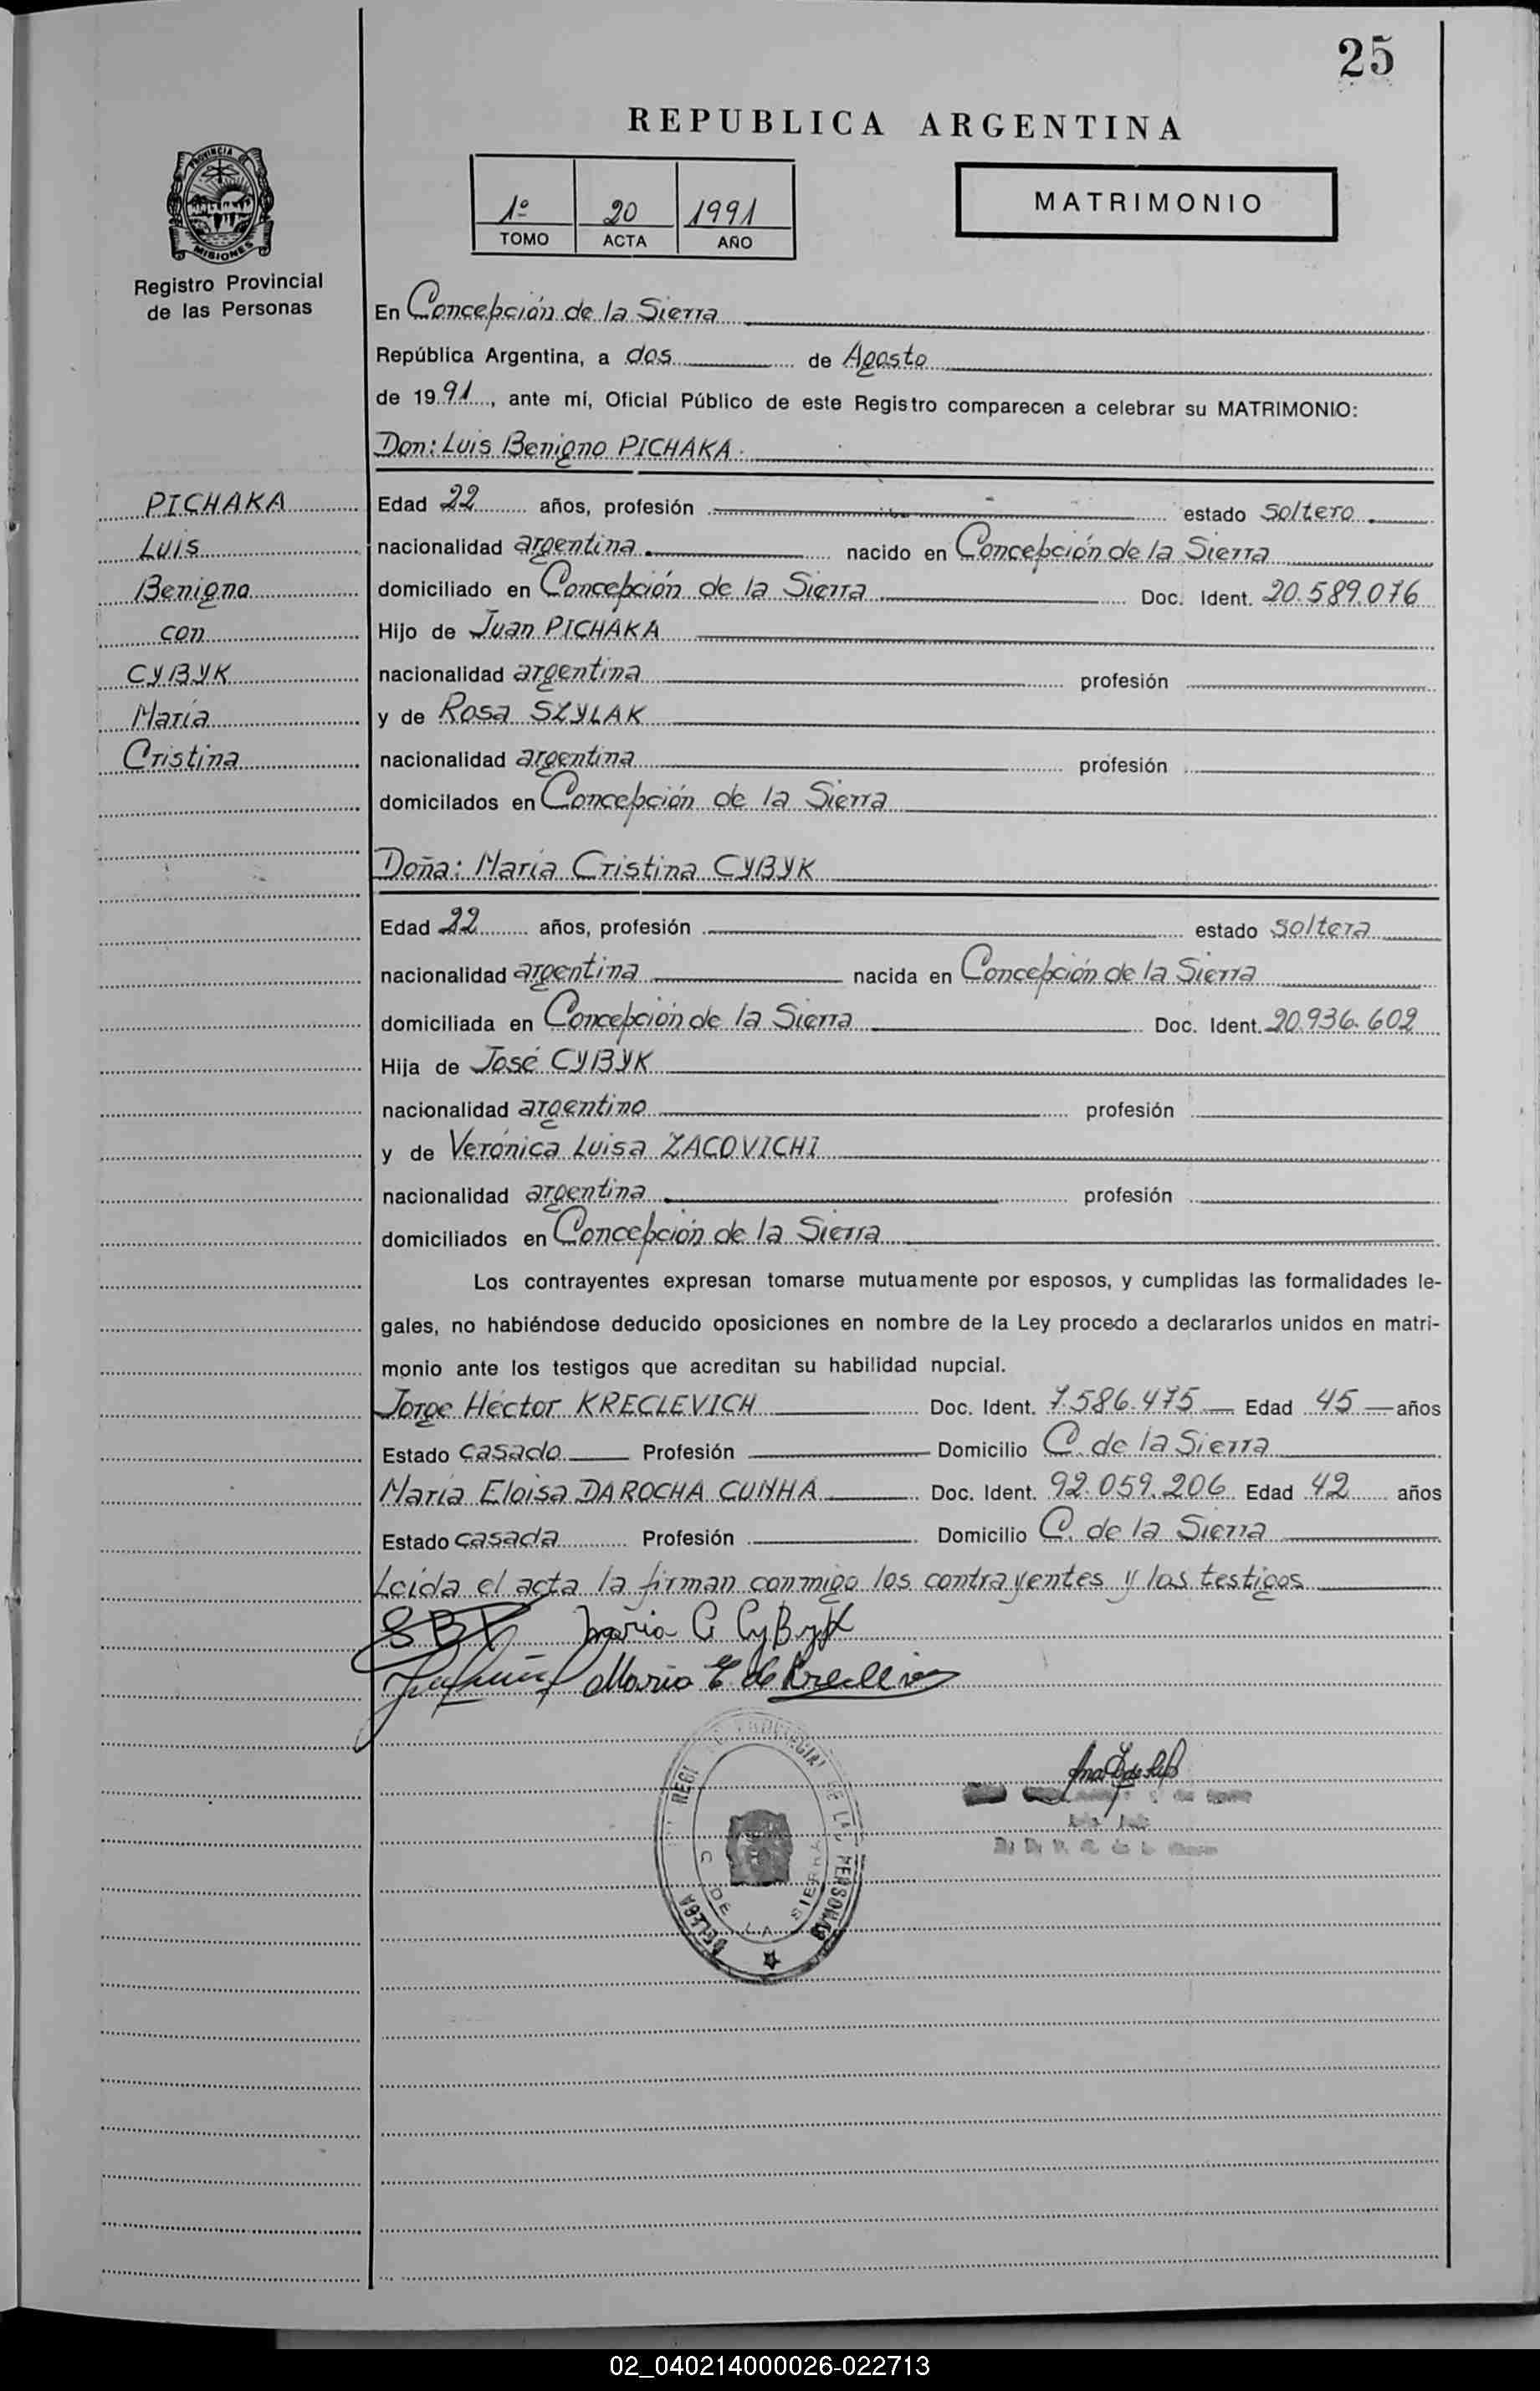 25
REPUBLICA ARGENTINA
PROVINCIA DE
MISIONES
Registro Provincial
de las Personas
1º 20 1991
TOMO ACTA AÑO
MATRIMONIO
En Concepción de la Sierra
República Argentina, a dos de Agosto
de 1991, ante mí, Oficial Público de este Registro comparecen a celebrar su MATRIMONIO:
Don: Luis Benigno PICHAKA
PICHAKA
Luis
Benigno
con
CYBYK
María
Cristina
Edad 22 años, profesión estado soltero
nacionalidad argentina nacido en Concepción de la Sierra
domiciliado en Concepción de la Sierra Doc. Ident. 20.589.076
Hijo de Juan PICHAKA
nacionalidad argentina profesión
y de Rosa SZYLAK
nacionalidad argentina profesión
domicilados en Concepción de la Sierra
Doña: María Cristina CYBYK
Edad 22 años, profesión estado soltera
nacionalidad argentina nacida en Concepción de la Sierra
domiciliada en Concepción de la Sierra Doc. Ident. 20.936.602
Hija de José CYBYK
nacionalidad argentino profesión
y de Verónica Luisa ZACOVICHI
nacionalidad argentina profesión
domiciliados en Concepción de la Sierra
Los contrayentes expresan tomarse mutuamente por esposos, y cumplidas las formalidades le-
gales, no habiéndose deducido oposiciones en nombre de la Ley procedo a declararlos unidos en matri-
monio ante los testigos que acreditan su habilidad nupcial.
Jorge Héctor KRECLEVICH Doc. Ident. 7.586.475 Edad 45 años
Estado casado Profesión Domicilio C. de la Sierra
María Eloisa DAROCHA CUNHA Doc. Ident. 92.059.206 Edad 42 años
Estado casada Profesión Domicilio C. de la Sierra
Leída el acta la firman conmigo los contrayentes y los testigos
María C CyByK
María E. de
DE LAS PERSONAS
C DE LA SIERRA
02_040214000026-022713